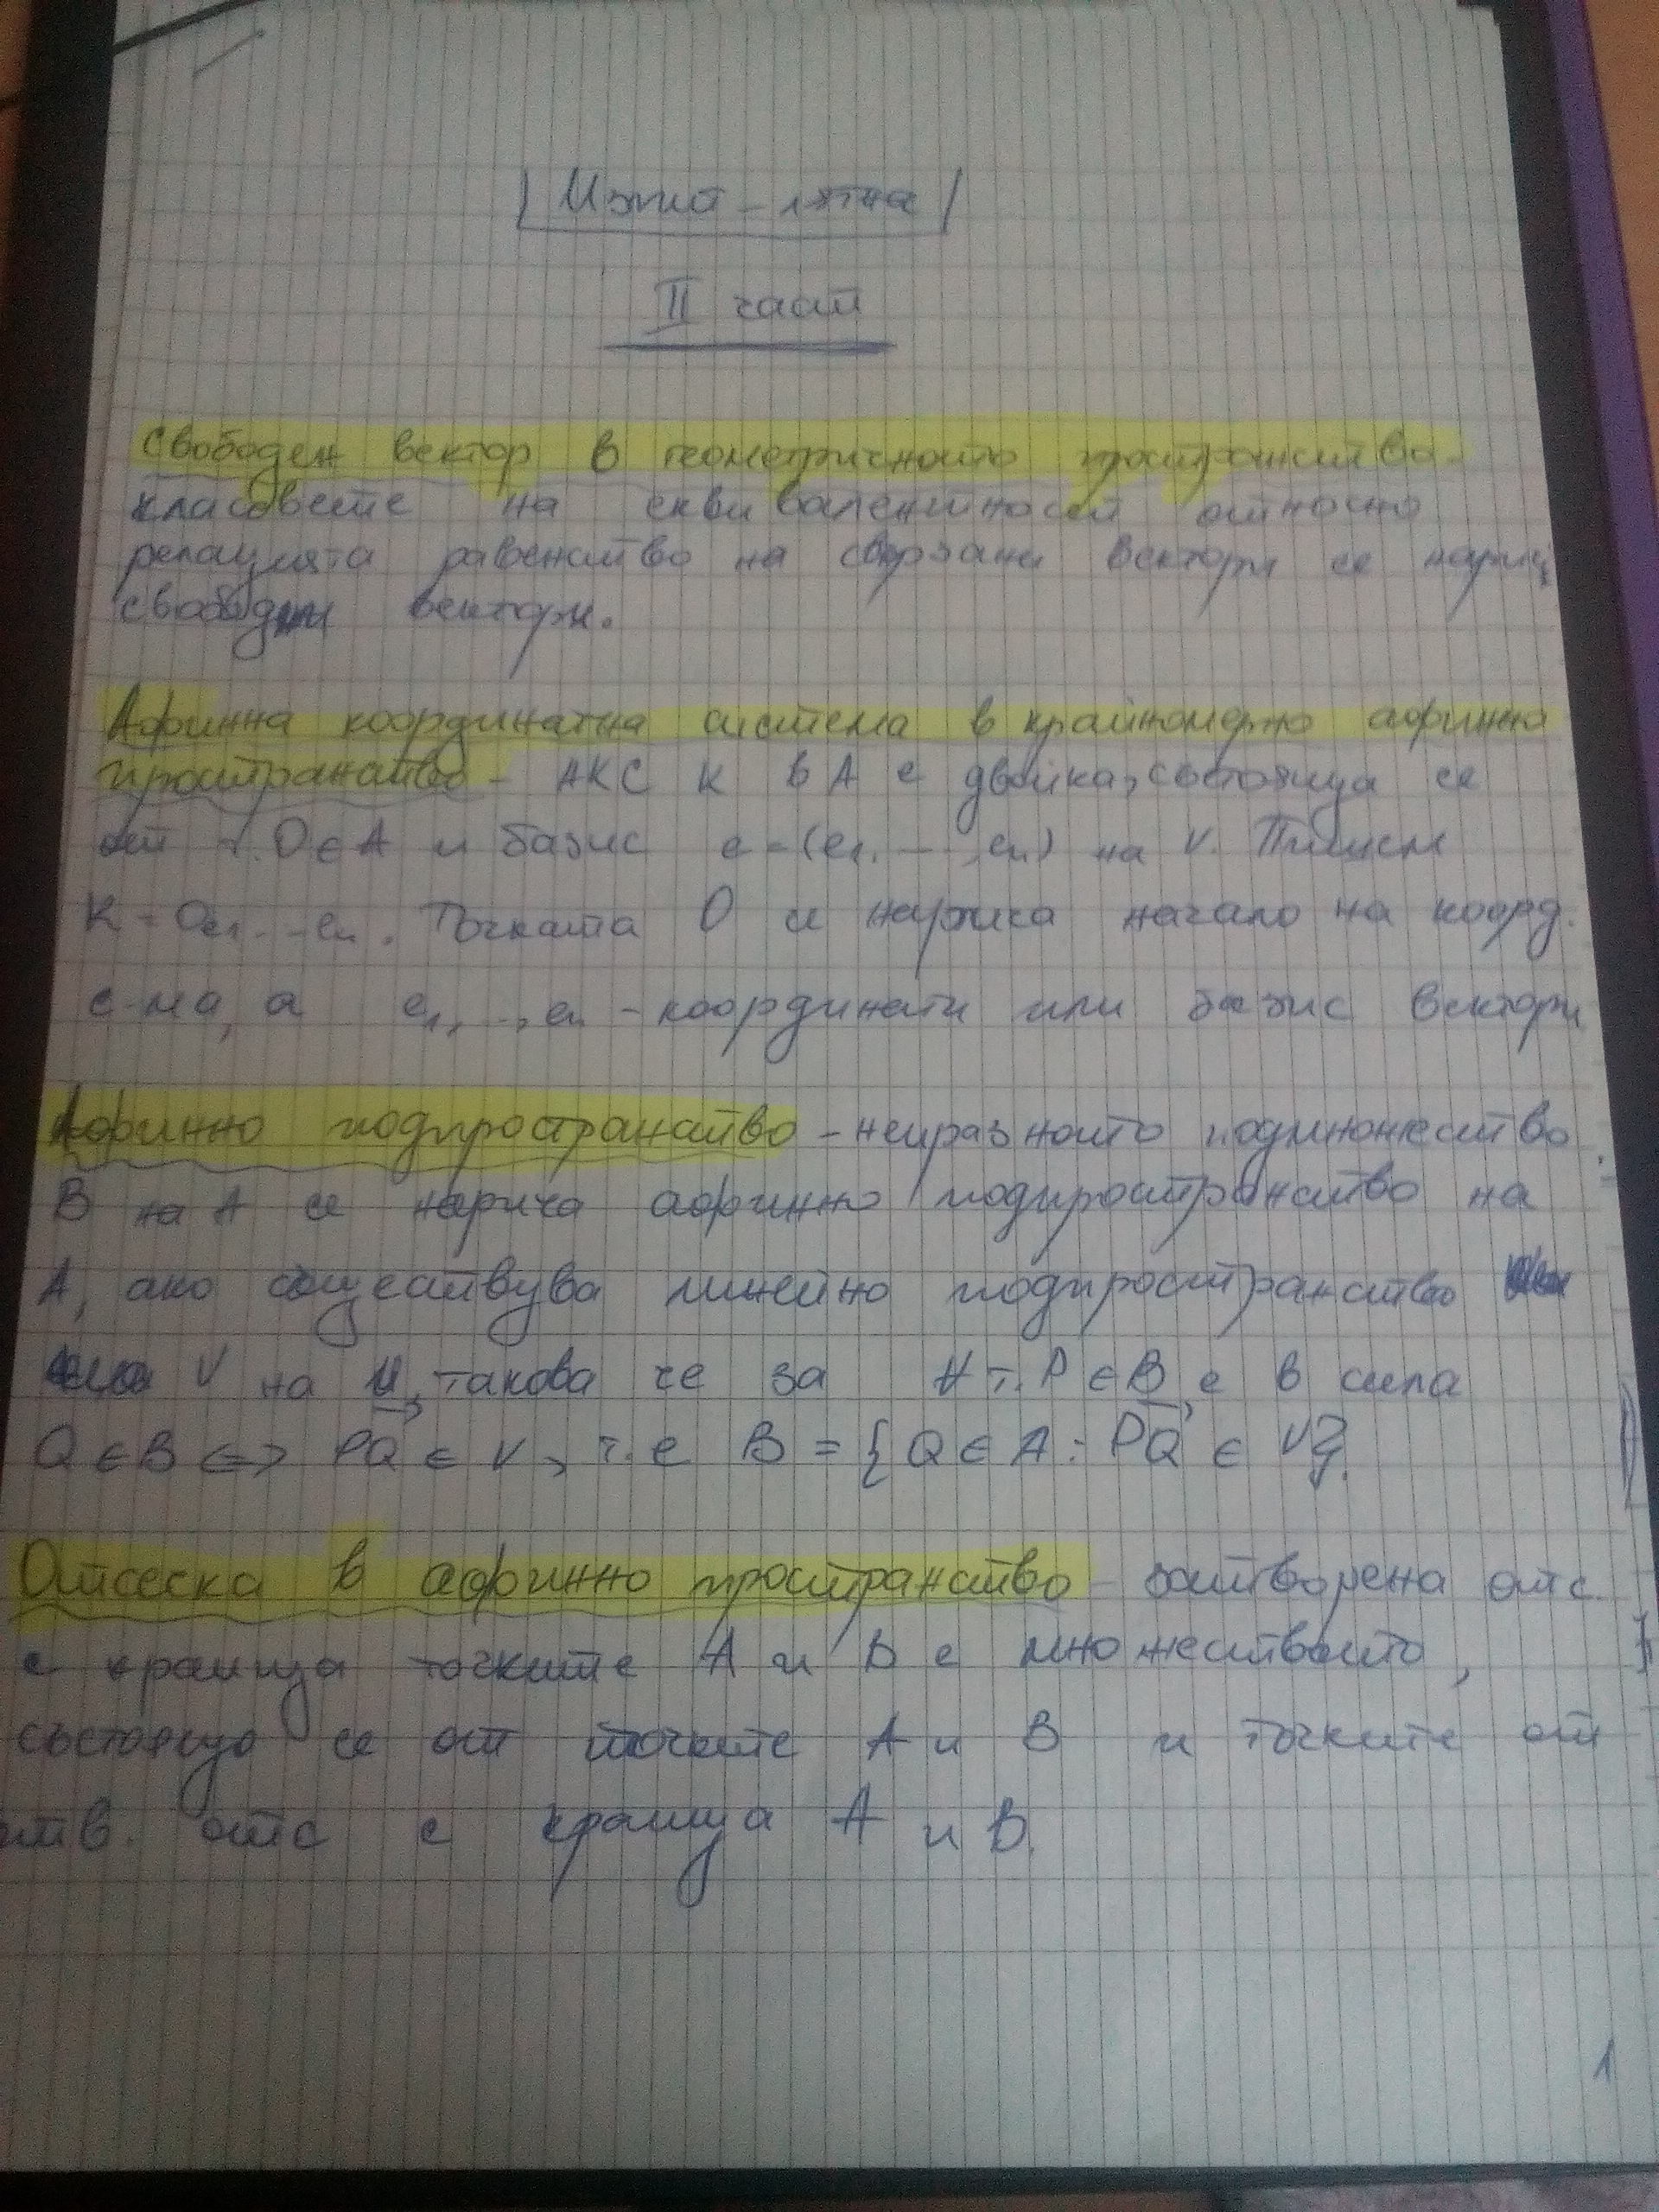 II част
Свободен вектор в геометричното пространство -
класовете на еквивалентност относно
релацията равенство на свързани вектори се
свободни вектори.
Афинна координатна система в крайномерно афинно
пространство - АКС К в А е двойка, състояща се
от т. О ∈ А и базис e = (e1, ..., en) на V. Пишем
К = Oe1...en. Точката О се нарича начало на коорд.
с-ма, а e1, .., en - координатни или базис вектори
Афинно подпространство - непразното подмножество
В на А се нарича афинно подпространство на
А, ако съществува линейно подпространство
V на U, такова че за ∀ т. P ∈ B, е в сила
Q ∈ B <=> PQ ∈ V, т.е B = {Q ∈ A : PQ ∈ V}.
Отсечка в афинно пространство - затворена отс.
с краища точките А и В е множеството,
състоящо се от точките А и В и точките от
отв. отс с краища А и В.
1